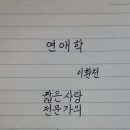 연애학
이환천
짧은사랑
전문가의